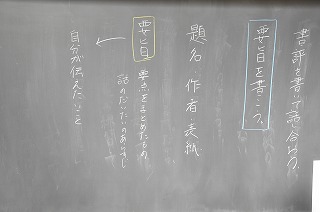 書評を書いて話し合おう
要旨を書こう
題名 作者 表紙
要旨 要点をまとめたもの
話のだいたいのあらすじ
自分が伝えたいこと